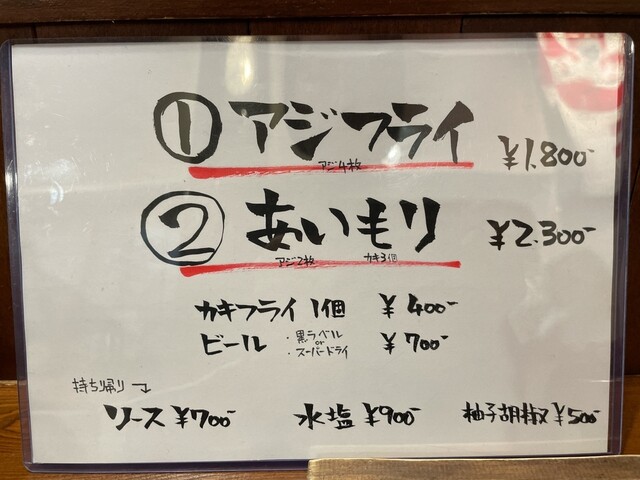 ① アジフライ ¥1.800-
アジ4枚
② あいもり ¥2.300-
アジ2枚 カキ3個
カキフライ 1個 ¥400-
ビール ・黒ラベル or ・スーパードライ ¥700-
持ち帰り
ソース ¥700- 水塩 ¥900- 柚子胡椒 ¥500-